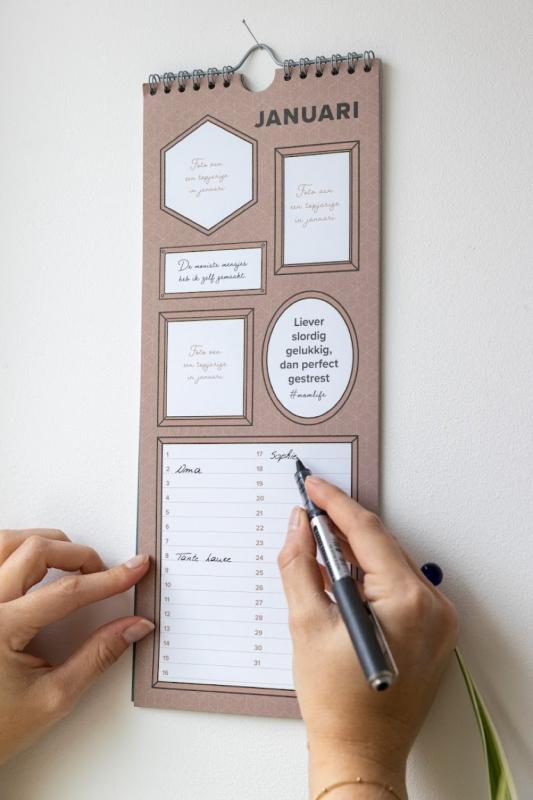 JANUARI
Foto van
een topjarige
in januari
Foto van
een topjarige
in januari
De mooiste mensjes
heb ik zelf gemaakt.
Liever
slordig
gelukkig,
dan perfect
gestrest
#momlife
Foto van
een topjarige
in januari
1
2 Oma
3
4
5
6
7
8 Tante
9
10
11
12
13
14
15
16
17 Sophie
18
19
20
21
22
23
24
25
26
27
28
29
30
31